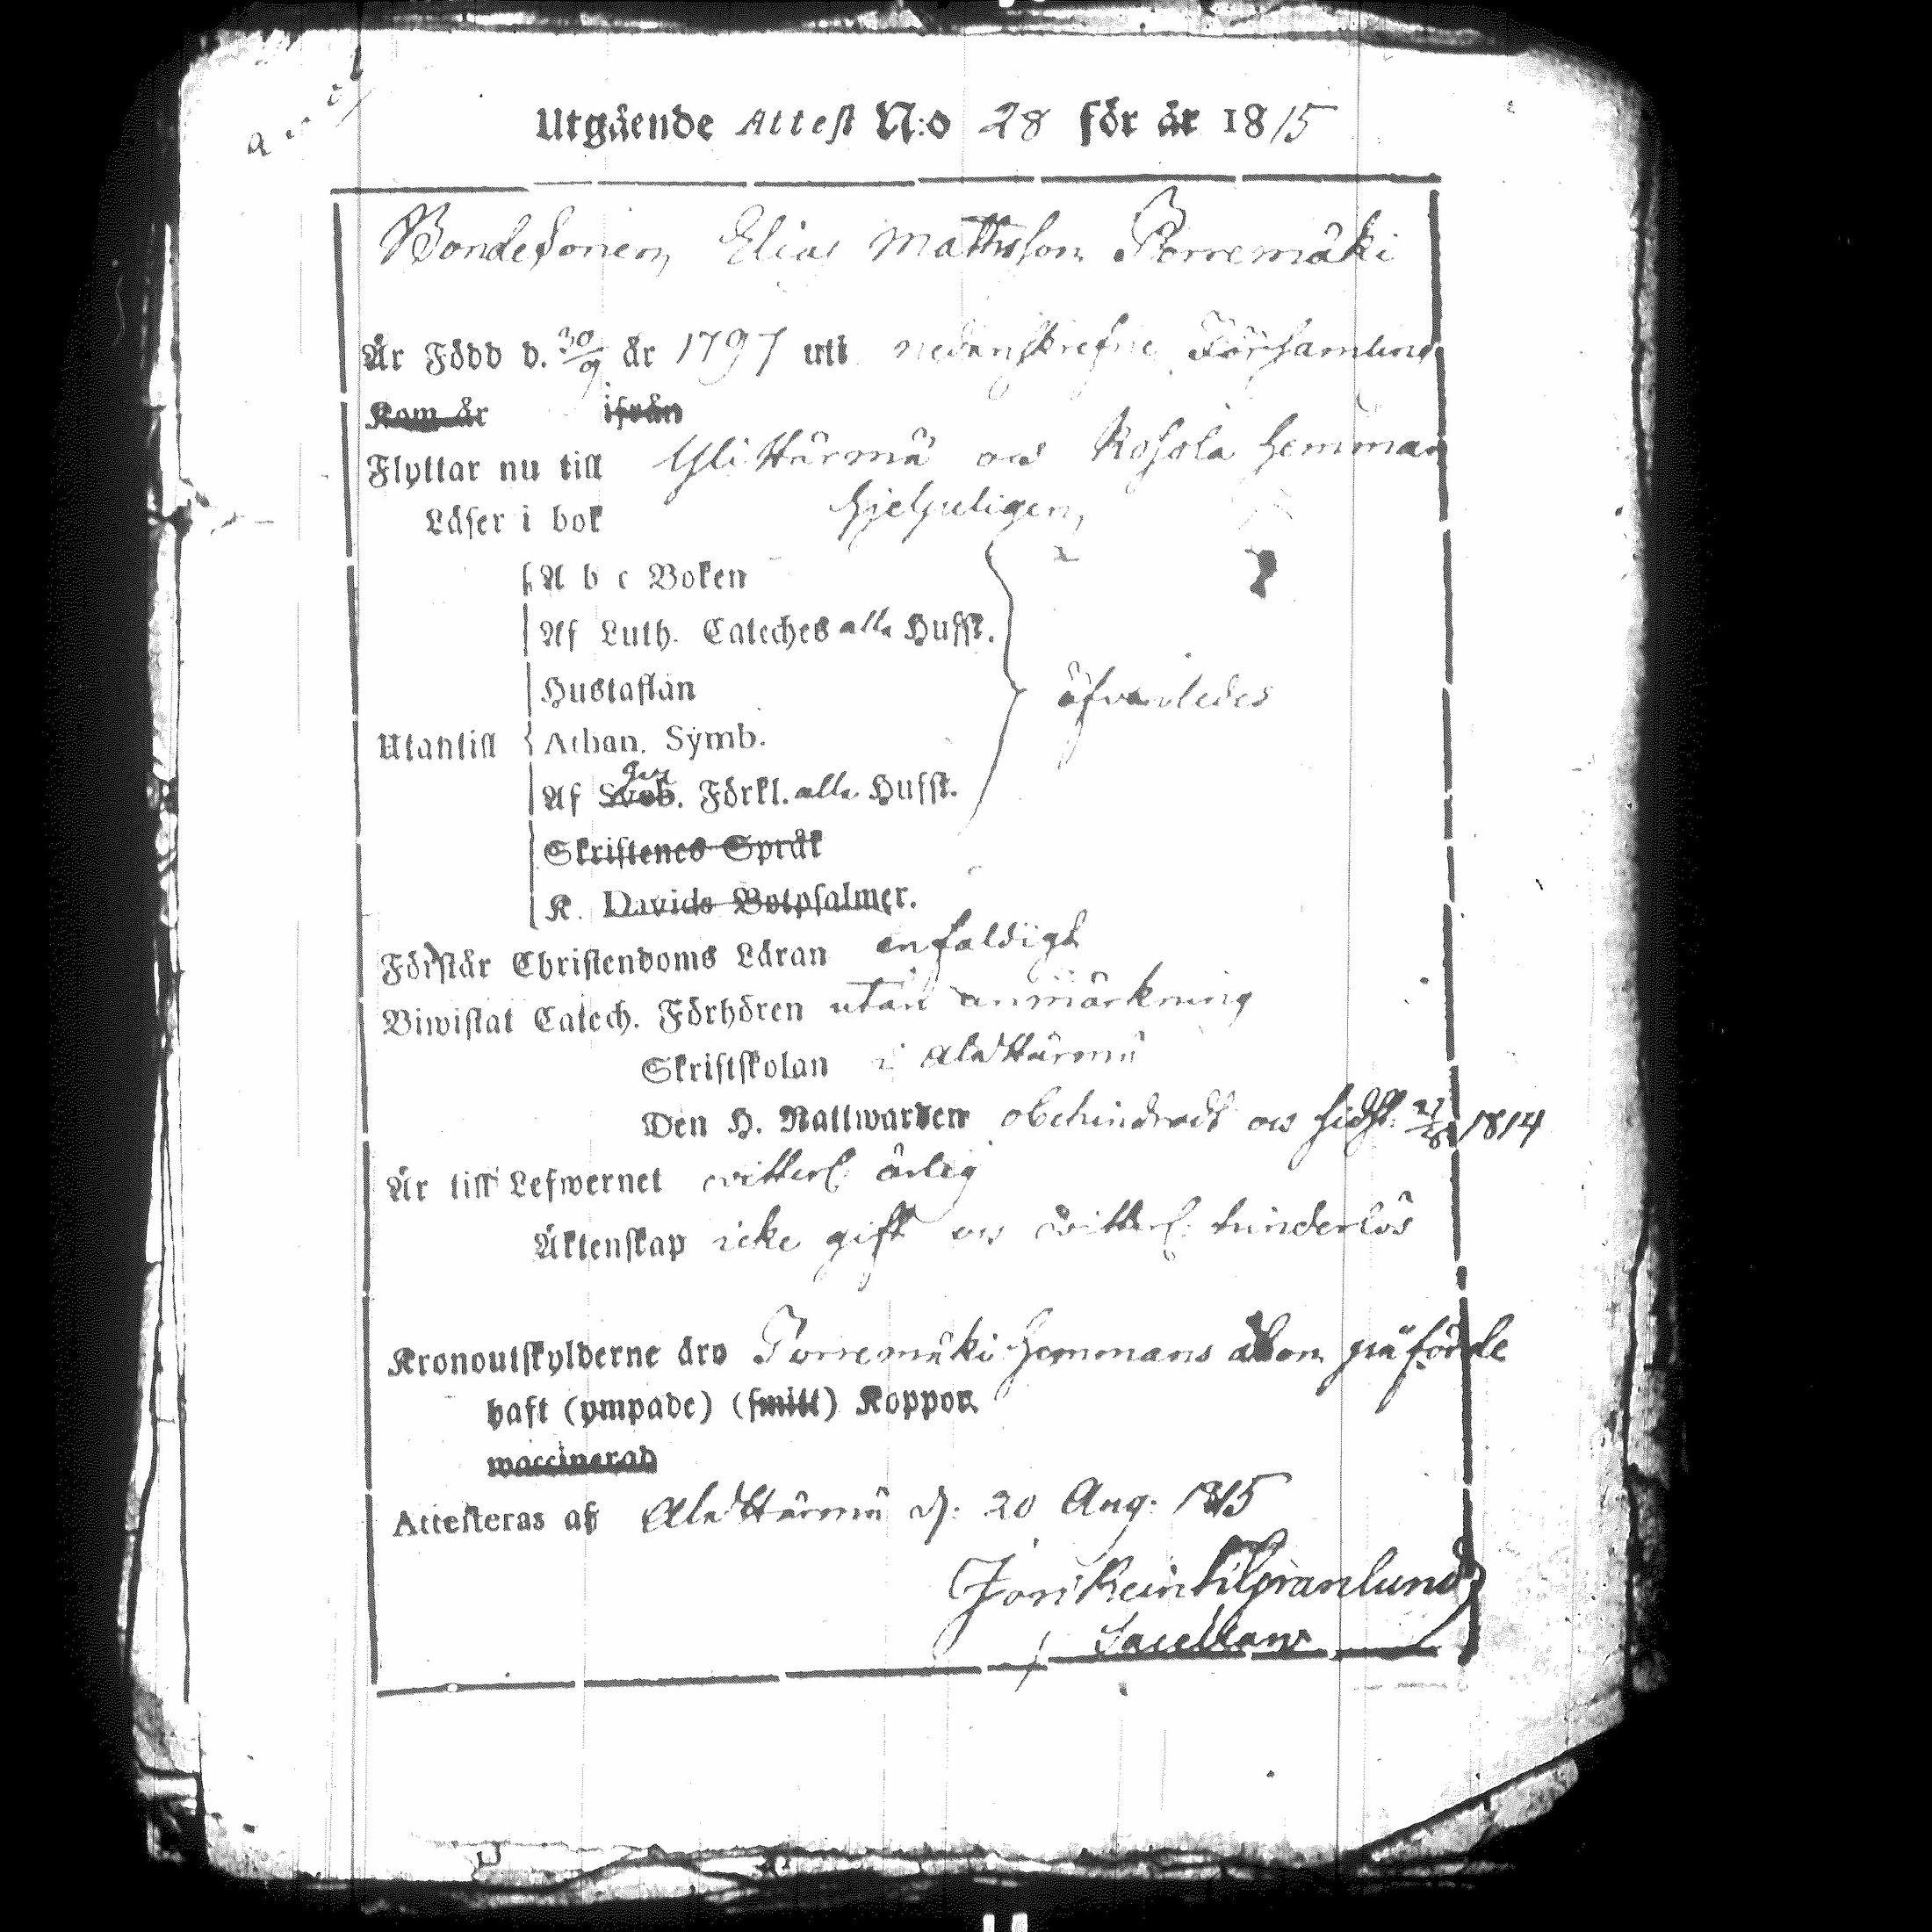 Utgående Attest N:o 28 för år 1815
Bondesonen Elias Mattsson Porremäki
Är Född d. 30/9 år 1797 uti nedanskrefne Församling
Kom år ifrån
Flyttar nu till Ylihärmä och Kosola hemman
Läser i bok hjelpeligen
A b c Boken
Af Luth. Cateches alla Hufst.
Hustaflan
Utantill Athan. Symb.
Af Sveb. Förkl. alla Hufst.
Skriftenes Språk
K. Davids Botpsalmer.
Förstår Christendoms Läran enfaldigt
Biwistat Catech. Förhören utan anmärkning
Skriftskolan i Alahärmä
Den H. Nattwarden obehindradt och sidst. 1814
Är till Lefwernet witterl. ärlig
Äktenskap icke gift och witterl. hinderlös
Kronoutskylderne äro Porremäki hemmans åbon påförde
haft (ympade) (smitt) Koppor.
waccinerad
Attesteras af Alahärmä d. 20 Aug. 1815
Granlund
Sacellan